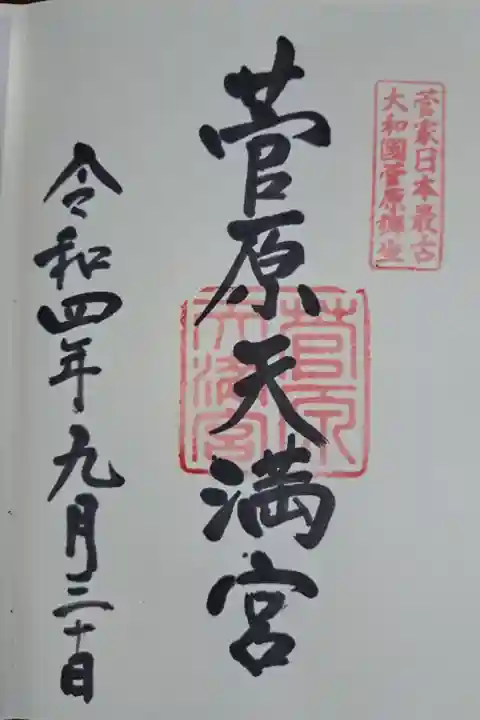 菅家日本最古
大和國菅原
菅原天満宮
菅原
天満宮
令和四年九月三十日